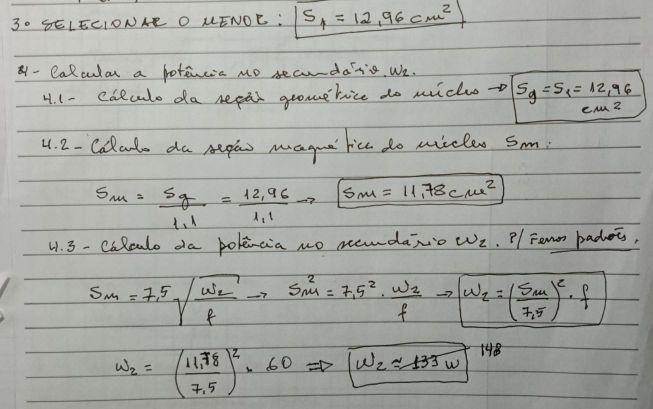 3º SELECIONAR O MENOR: S1 = 12,96 cm²
4 - Calcular a potência no secundário, W2.
4.1 - Cálculo da seção geométrica do núcleo → Sg = S1 = 12,96 cm²
4.2 - Cálculo da seção magnética do núcleo Sm:
Sm = Sg/1,1 = 12,96/1,1 → Sm = 11,78 cm²
4.3 - Cálculo da potência no secundário W2. P/ Ferros padrões.
Sm = 7,5 √(W2/f) → Sm² = 7,5² · W2/f → W2 = (Sm/7,5)² · f
W2 = (11,78/7,5)² · 60 ⇒ W2 ≈ 133 W 148